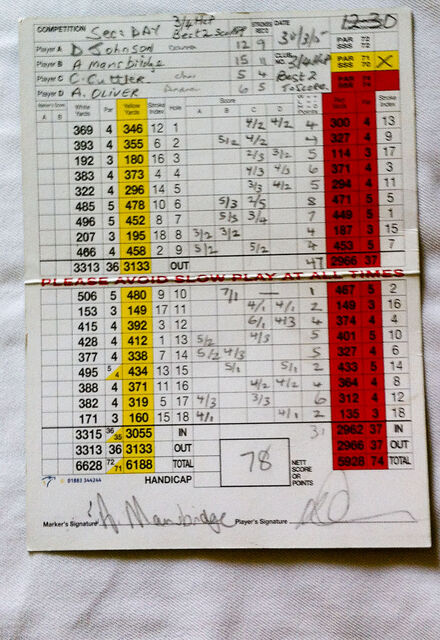 COMPETITION Sec's DAY 3/4 Hcp Best 2 Scores STROKES REC'D DATE 30/3/15 12-30
Player A D Johnson 12 9 PAR 72 SSS 72
Player B A Mansbridge 15 11 3/4 Hcp PAR 71 SSS 70 X
Player C C. Cuttler 5 4 Best 2 PAR 74
Player D A. OLIVER 6 5 To Score
Marker's Score White Yards Par Yellow Yards Stroke Index Hole Score Par Stroke Index
A B A B C D
369 4 346 12 1 4/2 4/2 4 300 4 13
393 4 355 6 2 5/2 4/2 4 327 4 9
192 3 180 16 3 2/3 3/2 5 114 3 17
383 4 373 4 4 4/3 4/3 6 371 4 3
322 4 296 14 5 3/3 4/2 5 294 4 11
485 5 478 10 6 5/3 2/5 8 471 5 5
496 5 452 8 7 5/3 3/4 7 449 5 1
207 3 195 18 8 3/2 3/2 4 187 3 15
466 4 458 2 9 5/2 5/2 4 453 5 7
3313 36 3133 OUT 47 2966 37
PLEASE AVOID SLOW PLAY AT ALL TIMES
506 5 480 9 10 7/1 — 1 467 5 2
153 3 149 17 11 4/1 4/1 2 149 3 16
415 4 392 3 12 6/1 4/3 4 374 4 4
428 4 412 1 13 5/2 4/3 5 401 5 10
377 4 338 7 14 5/2 4/3 5 327 4 6
495 5/4 434 13 15 5/1 5/1 2 433 5 14
388 4 371 11 16 4/2 4/2 4 364 4 8
382 4 319 5 17 4/3 3/3 6 312 4 12
171 3 160 15 18 4/1 4/1 2 135 3 18
3315 36/35 3055 IN 31 2962 37 IN
3313 36 3133 OUT 2966 37 OUT
6628 72/71 6188 TOTAL 78 5928 74 TOTAL
01883 344244 HANDICAP NETT SCORE OR POINTS
Marker's Signature A Mansbridge Player's Signature